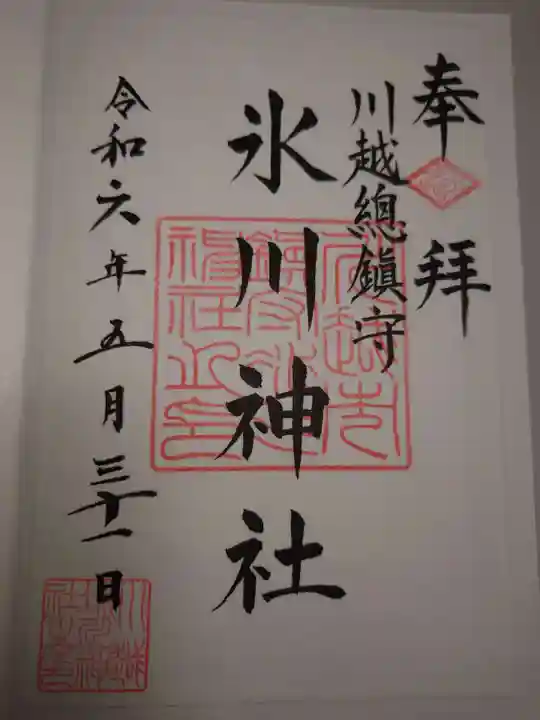 奉拜
川越總鎮守
氷川神社
令和六年五月三十一日